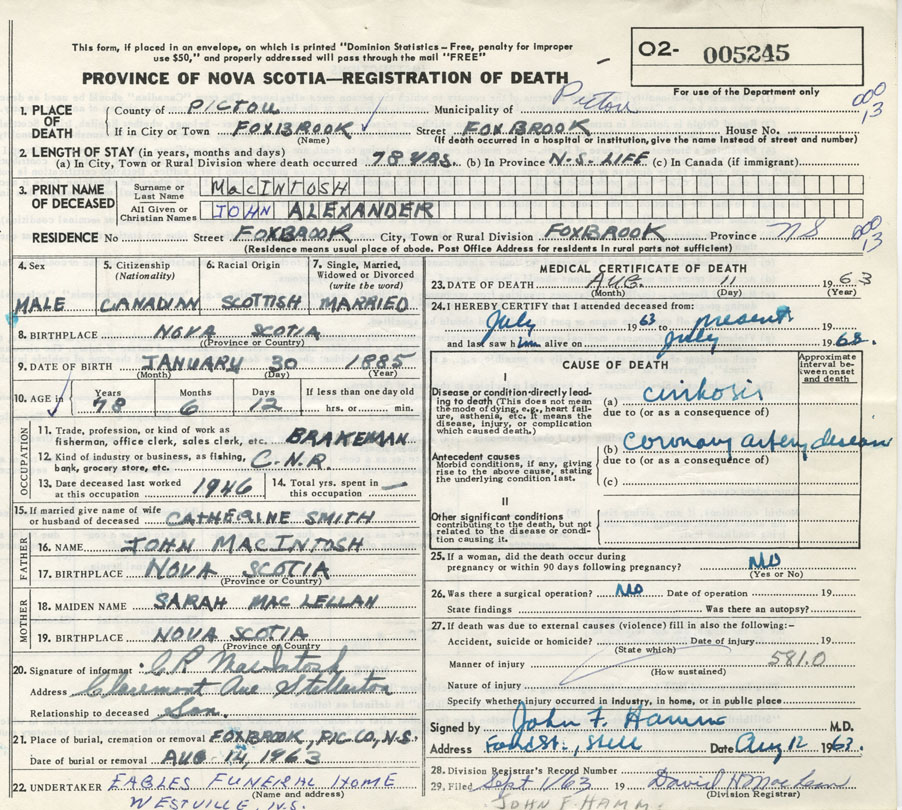 This form, if placed in an envelope, on which is printed "Dominion Statistics – Free, penalty for improper
use $50," and properly addressed will pass through the mail "FREE"
PROVINCE OF NOVA SCOTIA—REGISTRATION OF DEATH
O2- 005245
For use of the Department only
1. PLACE OF DEATH
County of PICTOU Municipality of Pictou
000 13
If in City or Town FOXBROOK Street FOXBROOK House No.
(Name) (If death occurred in a hospital or institution, give the name instead of street and number)
2. LENGTH OF STAY (in years, months and days)
(a) In City, Town or Rural Division where death occurred 78 YRS. (b) In Province N.S. LIFE (c) In Canada (if immigrant)
3. PRINT NAME OF DECEASED
Surname or Last Name MacINTOSH
All Given or Christian Names JOHN ALEXANDER
RESIDENCE No Street FOXBROOK City, Town or Rural Division FOXBROOK Province NS
000 13
(Residence means usual place of abode. Post Office Address for residents in rural parts not sufficient)
4. Sex
MALE
5. Citizenship
(Nationality)
CANADIAN
6. Racial Origin
SCOTTISH
7. Single, Married,
Widowed or Divorced
(write the word)
MARRIED
8. BIRTHPLACE NOVA SCOTIA
(Province or Country)
9. DATE OF BIRTH JANUARY 30 1885
(Month) (Day) (Year)
10. AGE in
Years Months Days If less than one day old
78 6 12 hrs. or min.
OCCUPATION
11. Trade, profession, or kind of work as
fisherman, office clerk, sales clerk, etc. BRAKEMAN
12. Kind of industry or business, as fishing,
bank, grocery store, etc. C.N.R.
13. Date deceased last worked
at this occupation 1946
14. Total yrs. spent in
this occupation —
15. If married give name of wife
or husband of deceased CATHERINE SMITH
FATHER
16. NAME JOHN MACINTOSH
17. BIRTHPLACE NOVA SCOTIA
(Province or Country)
MOTHER
18. MAIDEN NAME SARAH MAC LELLAN
19. BIRTHPLACE NOVA SCOTIA
(Province or Country)
20. Signature of informant C.R. MacIntosh
Address Claremont Ave Stellarton
Relationship to deceased Son.
21. Place of burial, cremation or removal FOXBROOK, PIC CO, N.S.
Date of burial or removal AUG 14, 1963
22. UNDERTAKER EAGLES FUNERAL HOME
(Name and address)
WESTVILLE, N.S.
MEDICAL CERTIFICATE OF DEATH
23. DATE OF DEATH AUG. 11 1963
(Month) (Day) (Year)
24. I HEREBY CERTIFY that I attended deceased from:
July 1963 to present 19
and last saw him alive on July 1963.
CAUSE OF DEATH
Approximate interval between onset and death
I
Disease or condition directly leading to death (This does not mean the mode of dying, e.g., heart failure, asthenia, etc. It means the disease, injury, or complication which caused death.)
(a) cirrhosis
due to (or as a consequence of)
(b) coronary artery disease
due to (or as a consequence of)
(c)
Antecedent causes
Morbid conditions, if any, giving rise to the above cause, stating the underlying condition last.
II
Other significant conditions
contributing to the death, but not related to the disease or condition causing it.
25. If a woman, did the death occur during
pregnancy or within 90 days following pregnancy? NO
(Yes or No)
26. Was there a surgical operation? NO Date of operation 19
State findings Was there an autopsy?
27. If death was due to external causes (violence) fill in also the following:–
Accident, suicide or homicide? Date of injury 19
(State which)
Manner of injury 581.0
(How sustained)
Nature of injury
Specify whether injury occurred in industry, in home, or in public place
Signed by John F. Hamm M.D.
Address Foord St., Stell Date Aug 12 1963.
28. Division Registrar's Record Number
29. Filed Sept 1/63 19 David H. MacLean
(Division Registrar)
JOHN F HAMM.